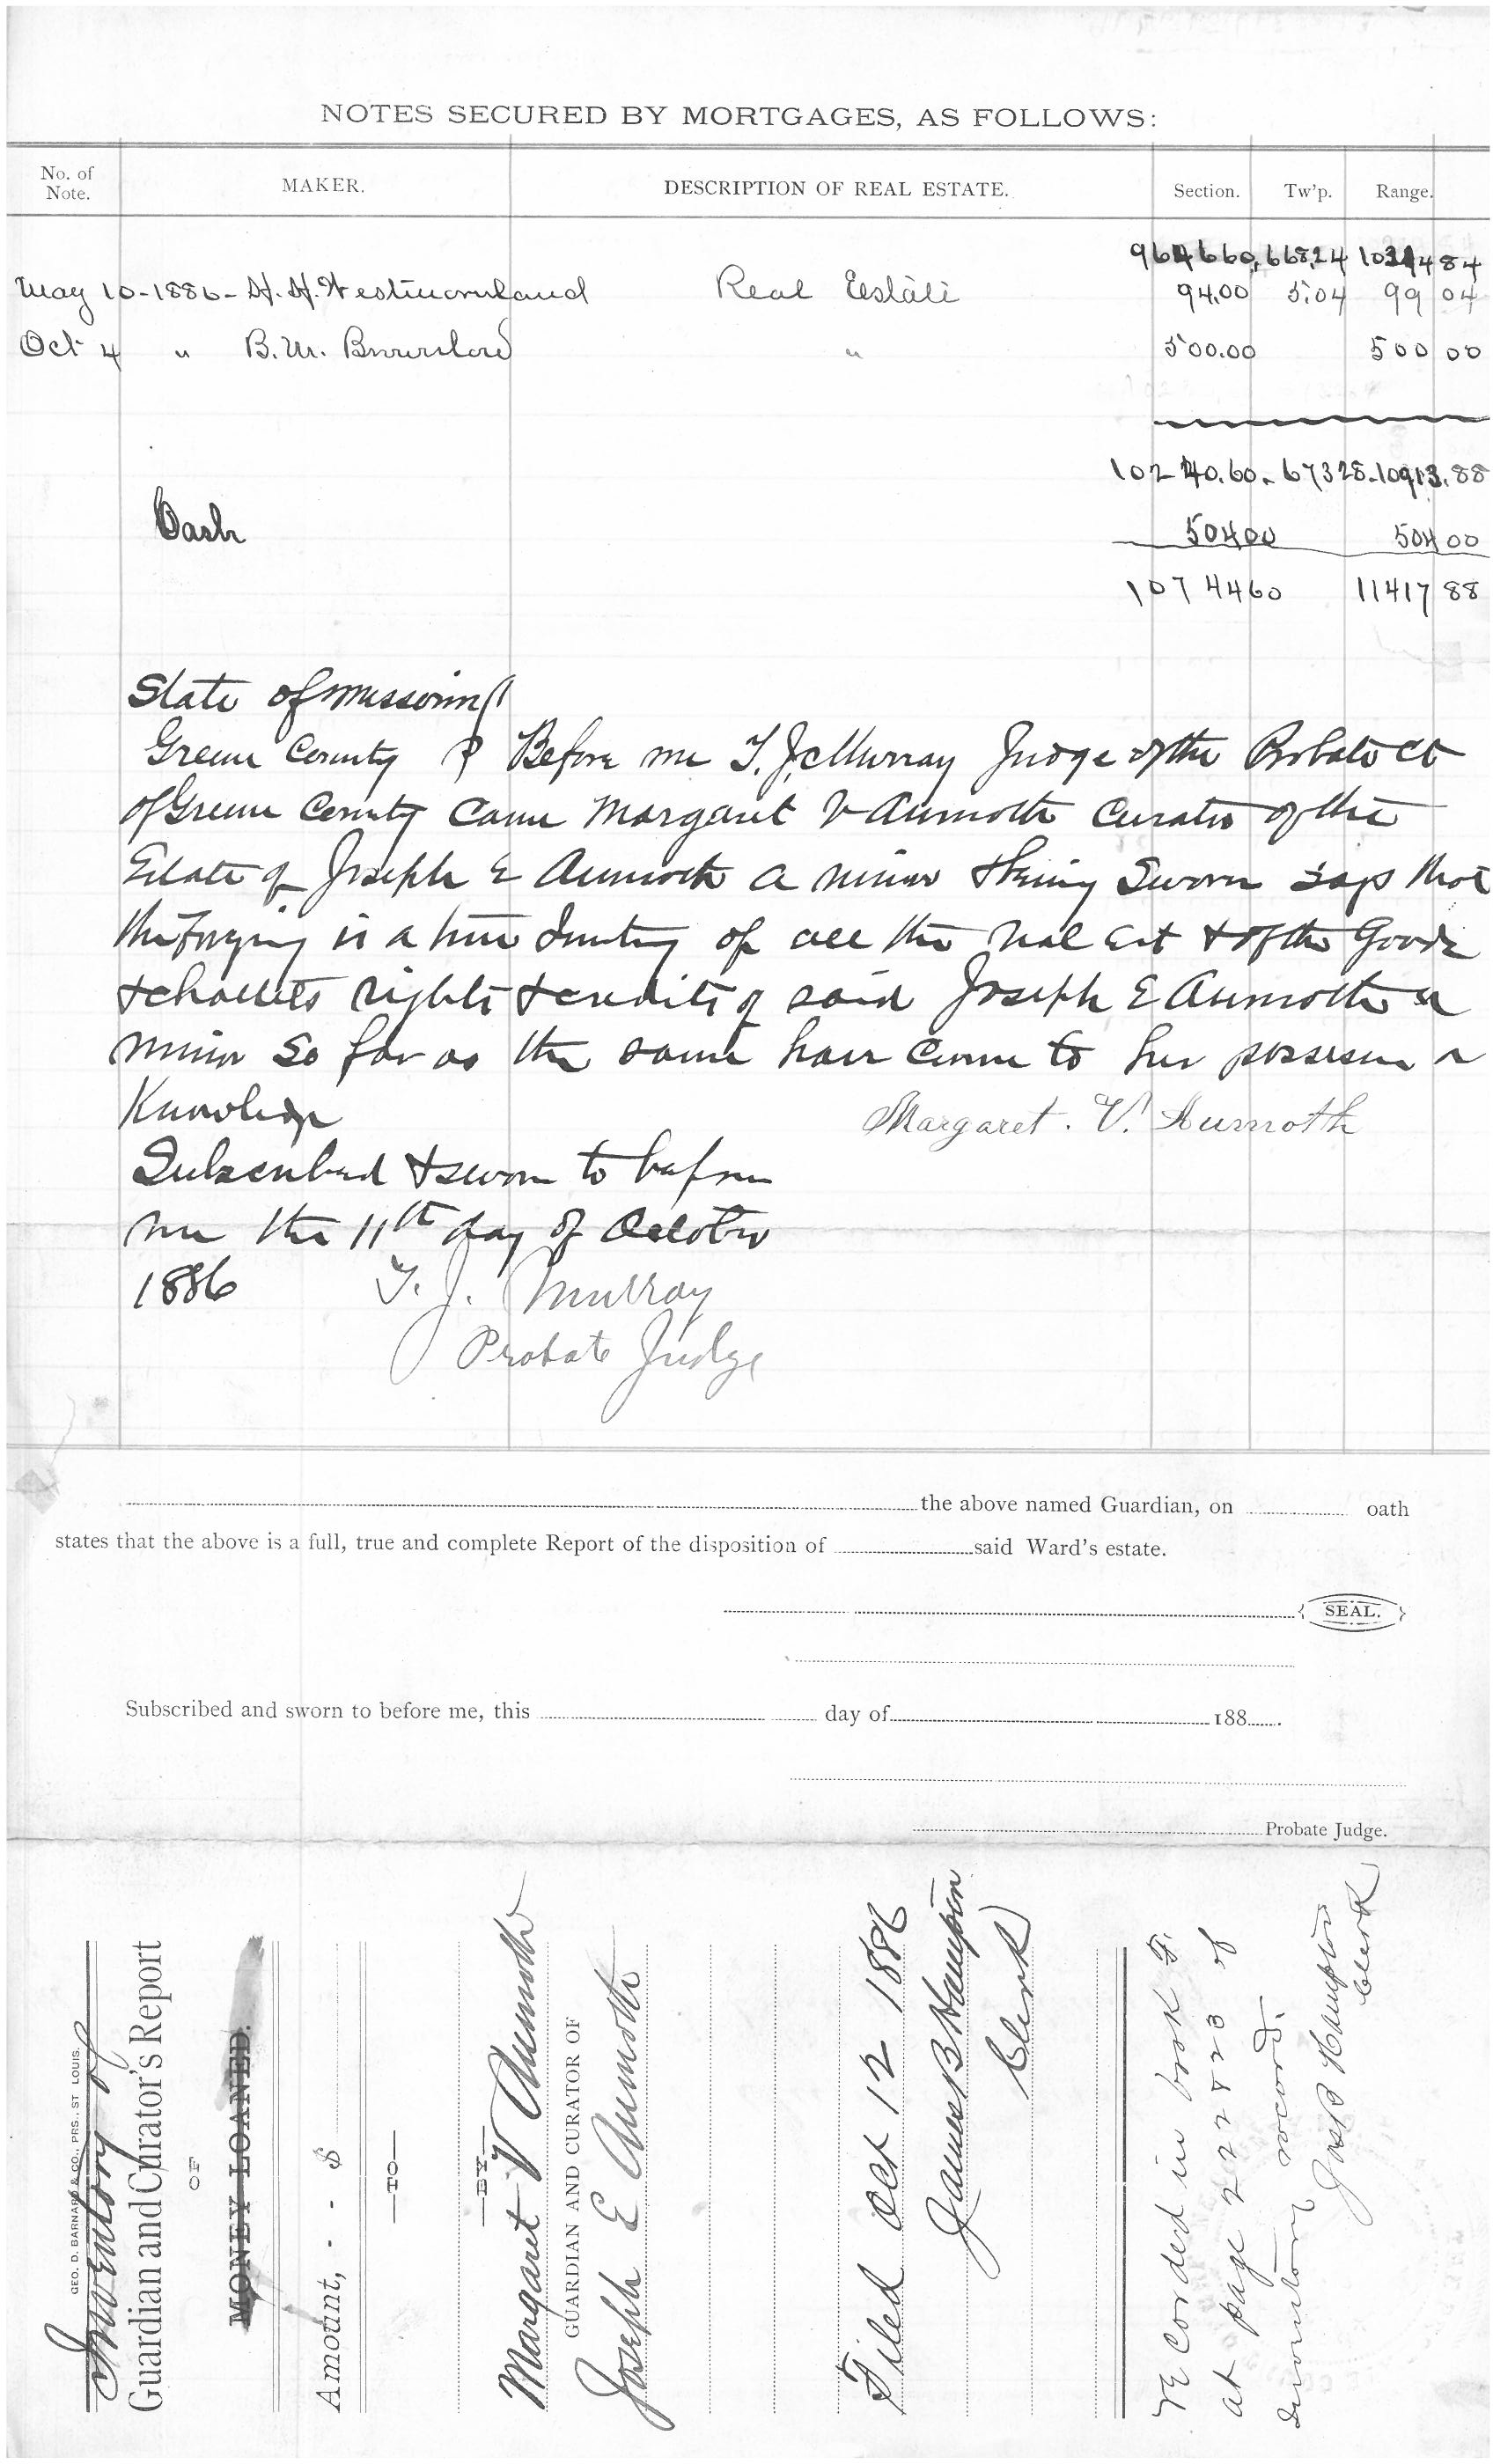 NOTES SECURED BY MORTGAGES, AS FOLLOWS:
No. of Note. MAKER. DESCRIPTION OF REAL ESTATE. Section. Tw'p. Range.
668.24 484
May 10-1886- H. H. Westmoreland Real Estate 94.00 5.04 99 04
Oct 4 " B. M. " 500.00 500 00
102 40.60. 67328. 10913.88
Cash 50400 504 00
107 4460 11417 88
State of Missouri
Greene County Before me T. J. Murray Judge of the Probate Ct
of Greene County Came Margaret V Aumoth Curator of the
Estate of Joseph E Aumoth a minor & being Sworn says that
the forgoing is a true of all the real Est & of the Goods
& chattels rights & credits of said Joseph E Aumoth a
minor So far as the same have come to her or
Knowledge Margaret. V. Aumoth
Subscribed & sworn to before
me this 11th day of October
1886 T. J. Murray
Probate Judge
the above named Guardian, on oath
states that the above is a full, true and complete Report of the disposition of said Ward's estate.
SEAL.
Subscribed and sworn to before me, this day of 188
Probate Judge.
GEO. D. BARNARD & CO., PRS., ST LOUIS.
Inventory of
Guardian and Curator's Report
OF
MONEY LOANED.
Amount, - - $
—TO—
—BY—
Margaret V Aumoth
GUARDIAN AND CURATOR OF
Joseph E Aumoth
Filed Oct 12 1886
James B Hampton
Clerk
Recorded in book F.
at page 22 & 23 of
inventory record.
Jas B Hampton
Clerk